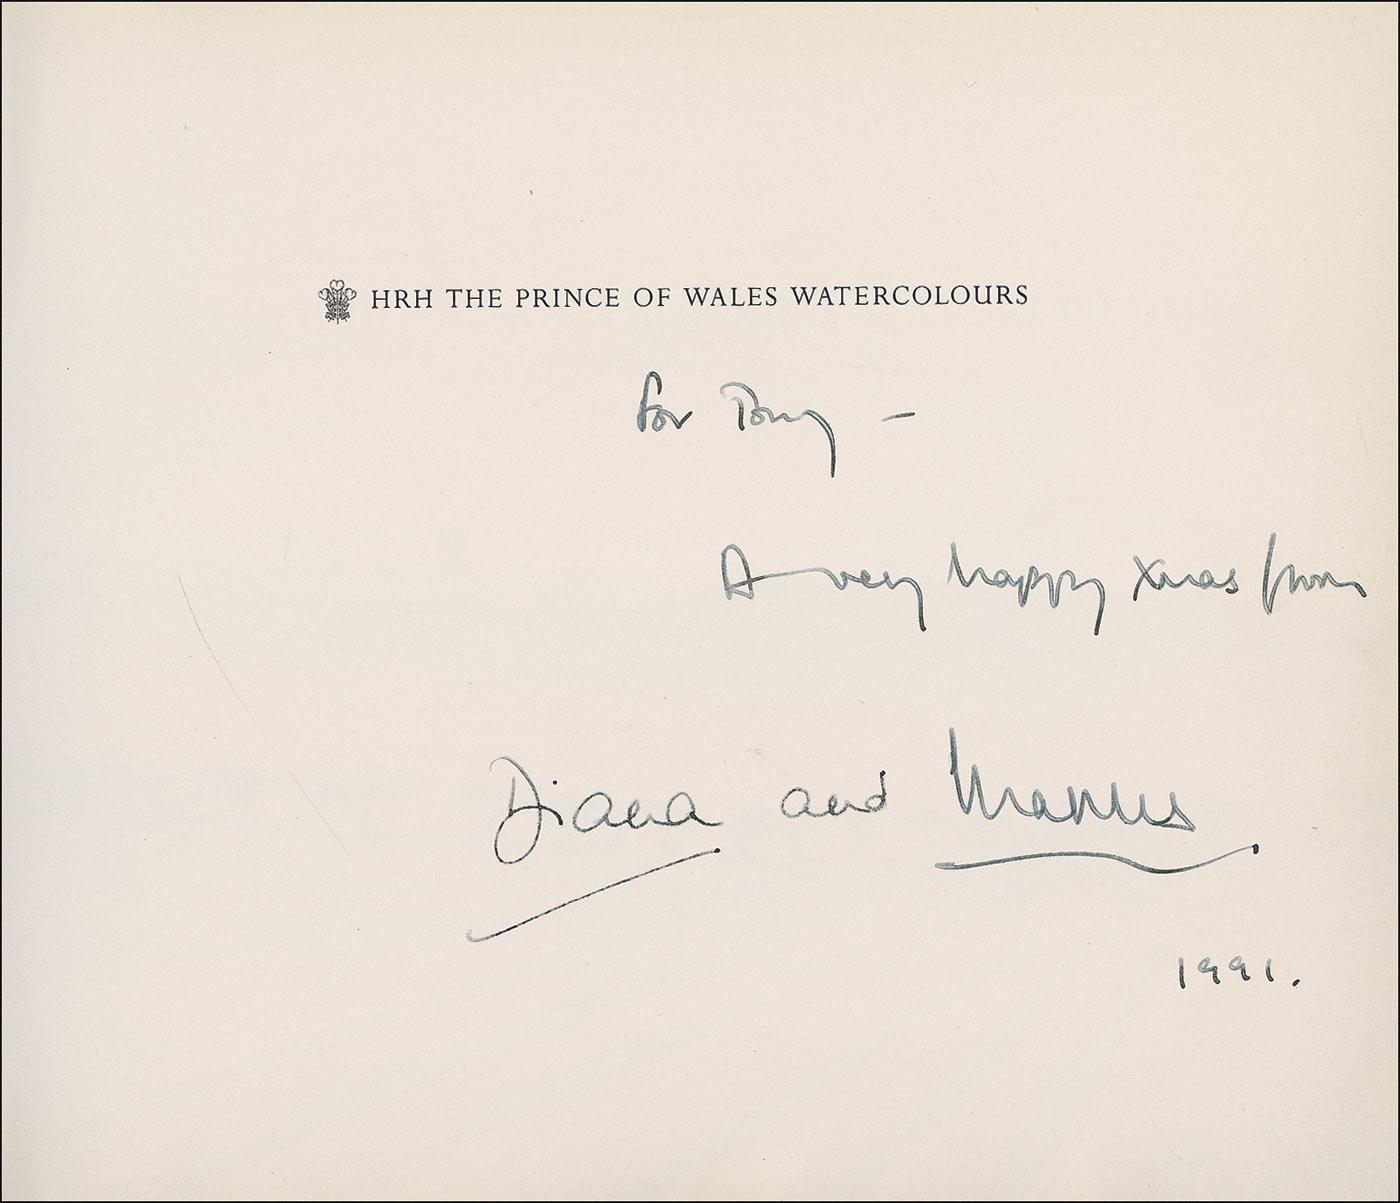 HRH THE PRINCE OF WALES WATERCOLOURS
For Tony –
A very happy Xmas from
Diana and Charles
1991.